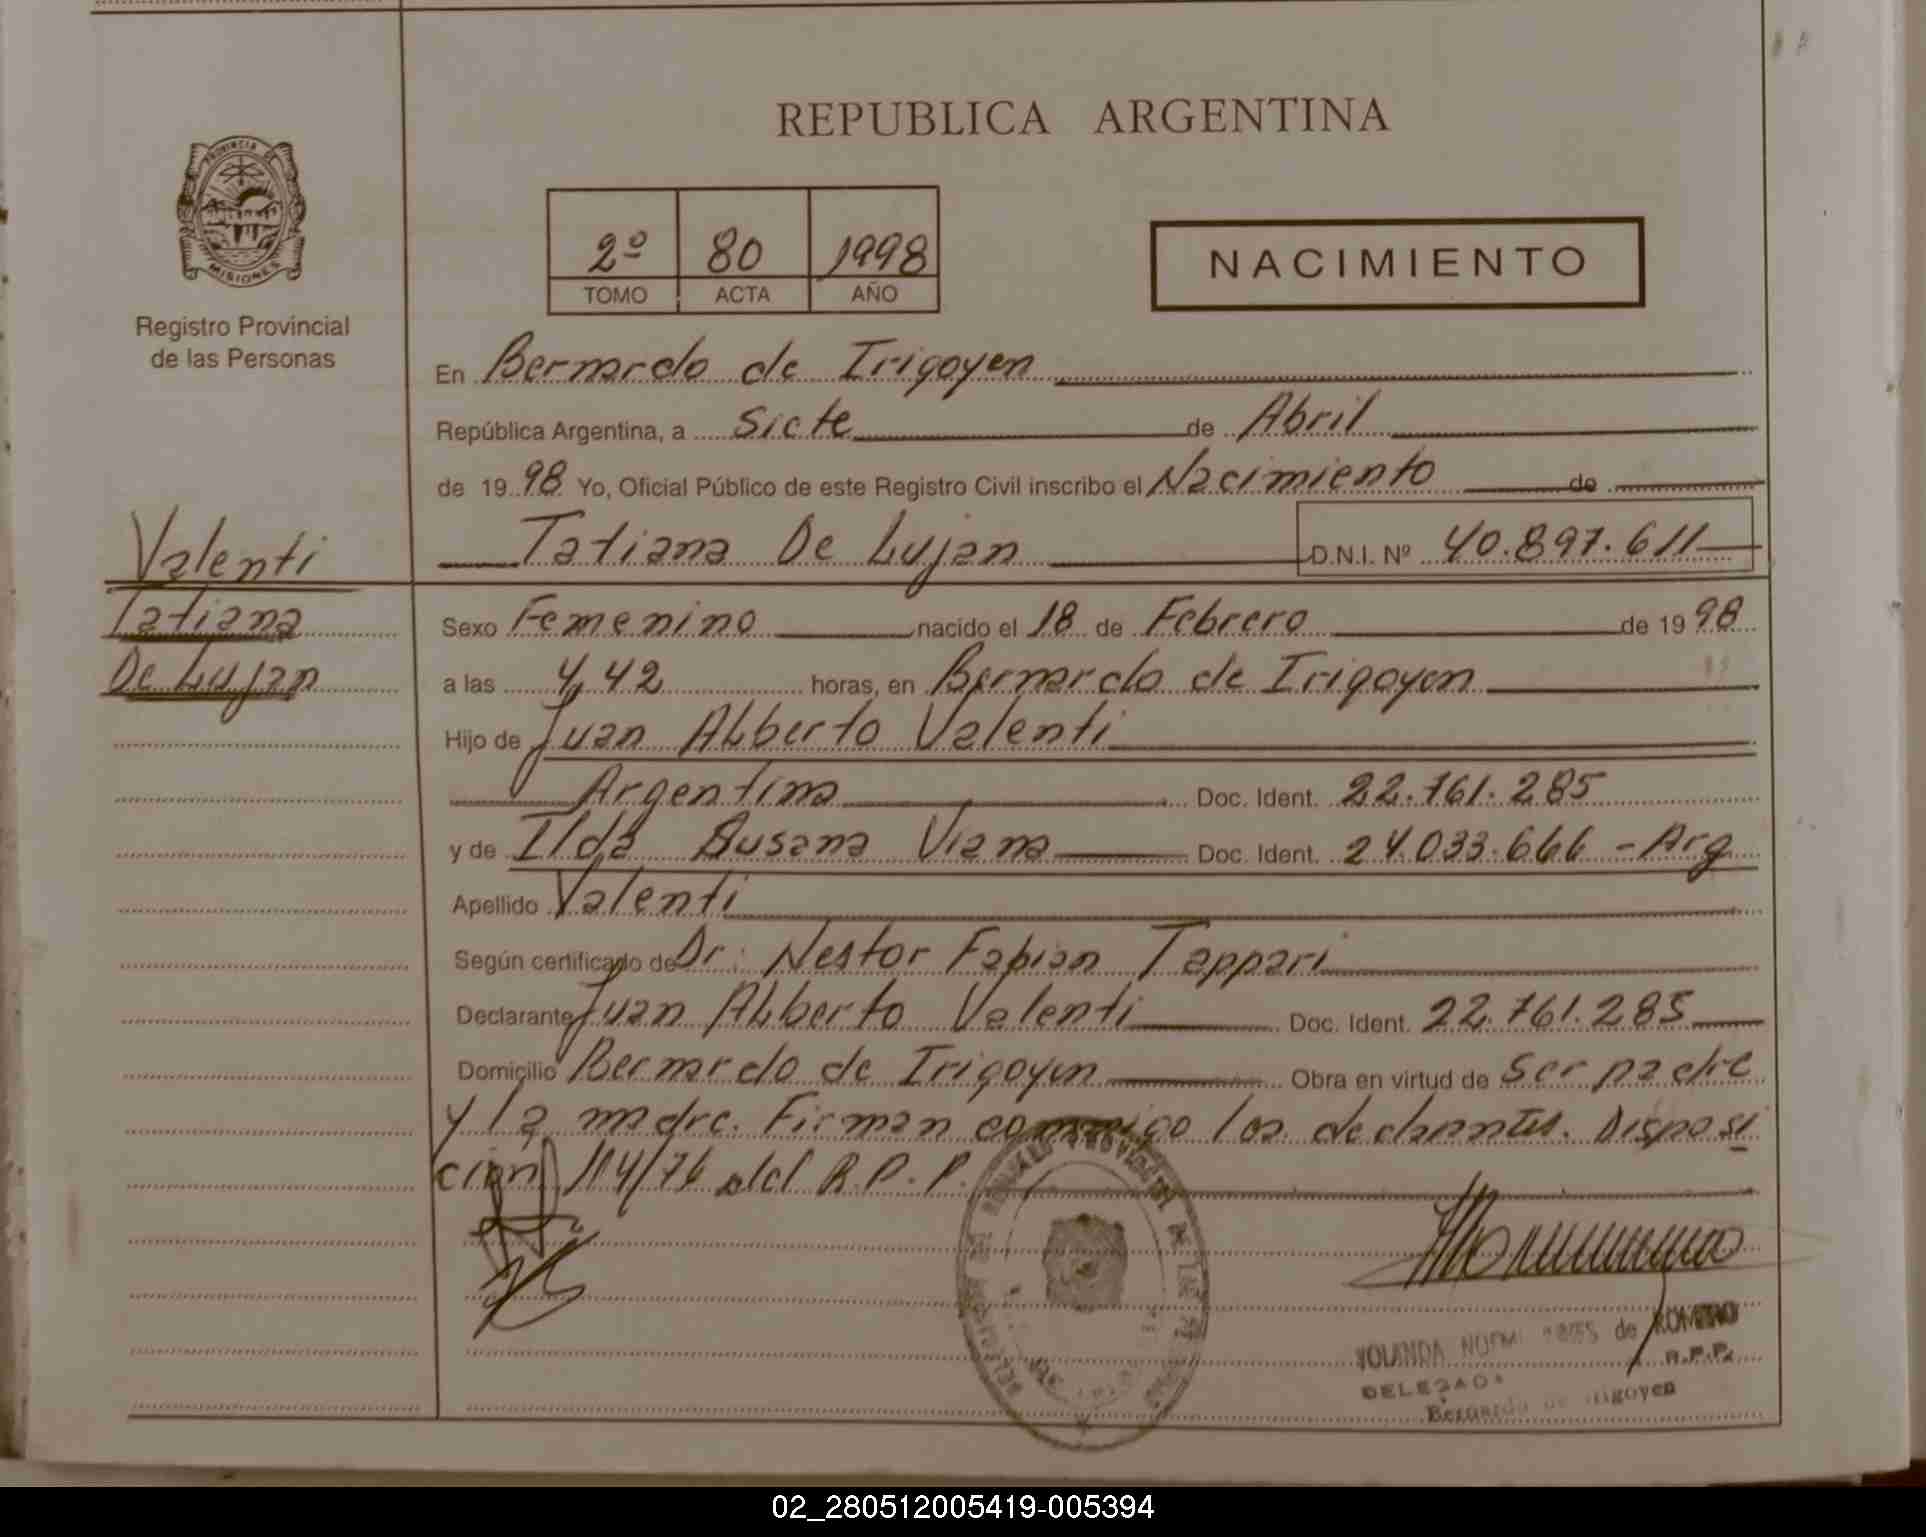 REPUBLICA ARGENTINA
PROVINCIA DE
MISIONES
Registro Provincial
de las Personas
2º 80 1998
TOMO ACTA AÑO
NACIMIENTO
En Bernardo de Irigoyen
República Argentina, a Siete de Abril
de 1998 Yo, Oficial Público de este Registro Civil inscribo el Nacimiento de
Tatiana De Lujan D.N.I. Nº 40.897.611
Valenti
Tatiana
De Lujan
Sexo Femenino nacido el 18 de Febrero de 1998
a las 4,42 horas, en Bernardo de Irigoyen
Hijo de Juan Alberto Valenti
Argentina Doc. Ident. 22.761.285
y de Ilda Susana Viana Doc. Ident. 24.033.666 - Arg
Apellido Valenti
Según certificado de Dr. Nestor Fabian Tappari
Declarante Juan Alberto Valenti Doc. Ident. 22.761.285
Domicilio Bernardo de Irigoyen Obra en virtud de ser padre
y la madre. Firman conmigo los declarantes. Disposi
cion 114/76 del R.P.P.
YOLANDA de ROMERO
R.P.P.
DELEGADA
Bernardo de Irigoyen
02_280512005419-005394